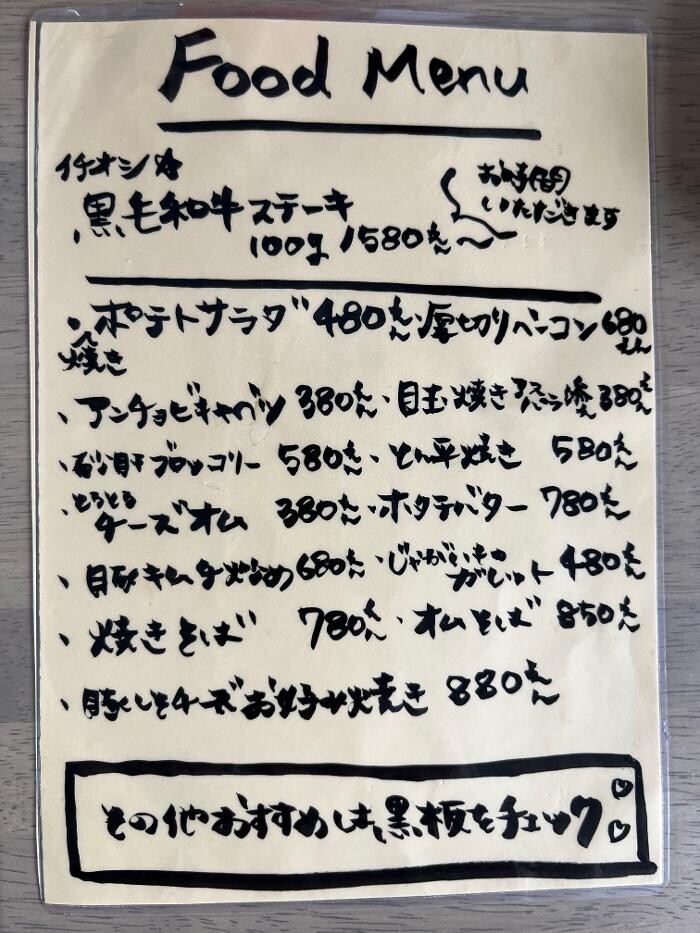 Food Menu
イチオシ☆
黒毛和牛ステーキ
100g 1580えん〜
お時間
いただきます
・焼きポテトサラダ 480えん ・厚切りベーコン 680えん
・アンチョビキャベツ 380えん ・目玉焼きアスパラ添え 380えん
・砂肝ブロッコリー 580えん ・とん平焼き 580えん
・とろとろチーズオム 380えん ・ホタテバター 780えん
・豚キムチ炒め 680えん ・じゃがいものガレット 480えん
・焼きそば 780えん ・オムそば 850えん
・豚しそチーズお好み焼き 880えん
その他おすすめは黒板をチェック♡♡